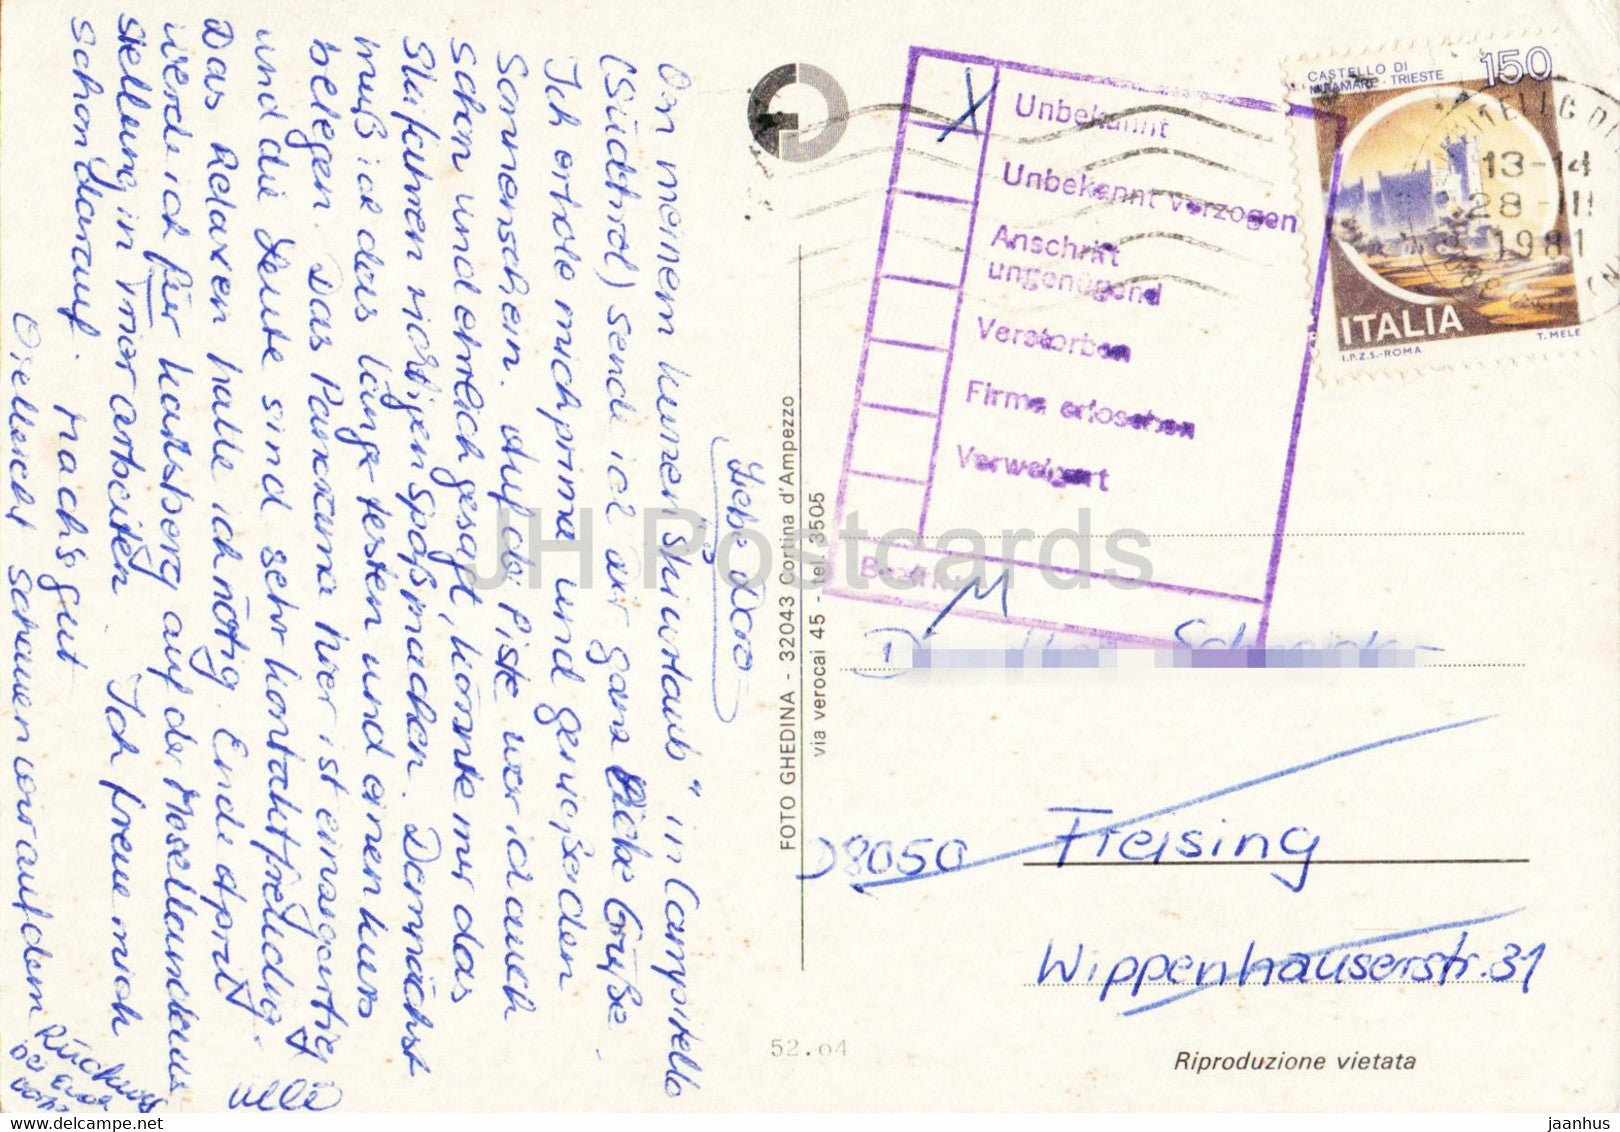 Liebe Dora
Von meinem kurzen "Skiurlaub" in Campitello
(Südtirol) sende ich dir ganz liebe Grüße.
Ich erhole mich prima und genieße den
Sonnenschein. Auf der Piste war ich auch
schon und ehrlich gesagt, könnte mir das
Skifahren richtigen Spaß machen. Demnächst
muß ich das länger testen und einen Kurs
belegen. Das Panorama hier ist einzigartig
und die Leute sind sehr kontaktfreudig.
Das Relaxen hatte ich nötig. Ende April
werde ich für
stellung in arbeiten. Ich freue mich
schon darauf. Mach's gut
Vielleicht schauen wir auf dem
Rückweg
bei euch
vorbei
FOTO GHEDINA - 32043 Cortina d'Ampezzo
via verocai 45 - tel. 3505
Unbekannt
Unbekannt verzogen
Anschrift
ungenügend
Verstorben
Firma erloschen
Verweigert
CASTELLO DI
MIRAMARE - TRIESTE
150
ITALIA
I.P.Z.S.-ROMA
T. MELE
13-14
28-II
1981
D8050 Freising
Wippenhauserstr. 31
52.04
Riproduzione vietata
JH Postcards
www.delcampe.net
jaanhus